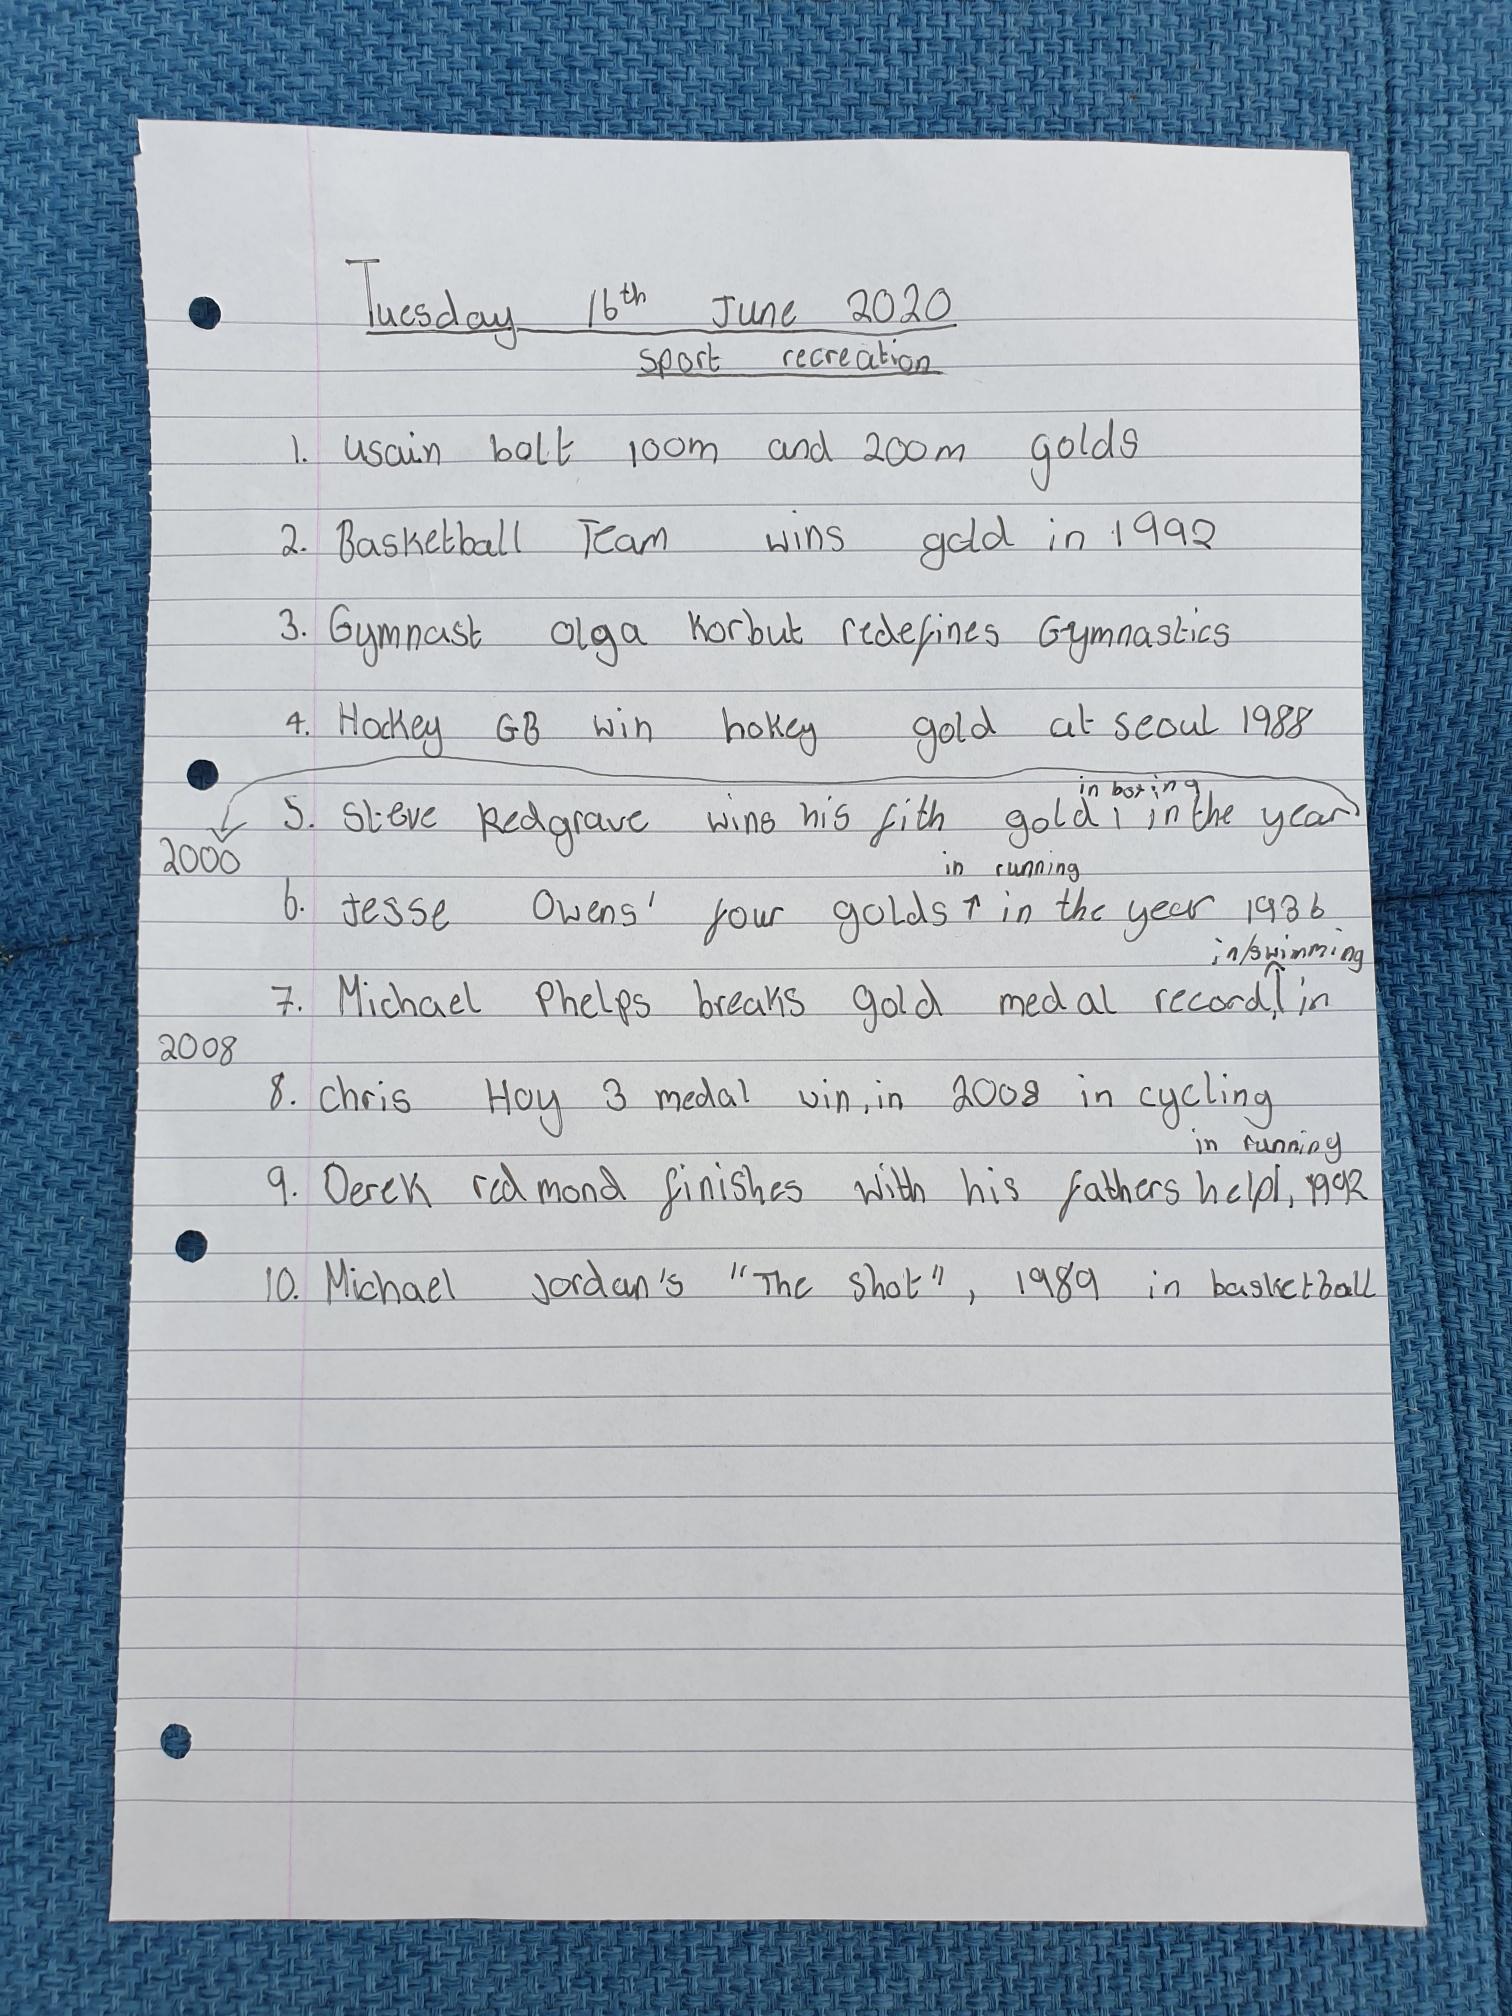 Tuesday 16th June 2020
sport recreation
1. usain bolt 100m and 200m golds
2. Basketball Team wins gold in 1992
3. Gymnast olga Korbut redefines Gymnastics
4. Hockey GB win hokey gold at seoul 1988
in boxing
5. Steve Redgrave wins his fith gold in the year
2000
in running
6. Jesse Owens' four golds ↑ in the year 1936
in/swimming
7. Michael Phelps breaks gold medal record, in
2008
8. chris Hoy 3 medal win, in 2008 in cycling
in running
9. Derek redmond finishes with his fathers help, 1992
10. Michael Jordan's "The shot", 1989 in basketball